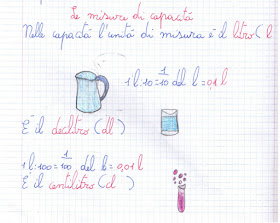 Le misura di capacità
Nelle capacità l'unità di misura è il litro (l
1 l : 10 = 1/10 del l = 0,1 l
È il decilitro (dl )
1 l : 100 = 1/100 del l = 0,01 l
È il centilitro (cl )